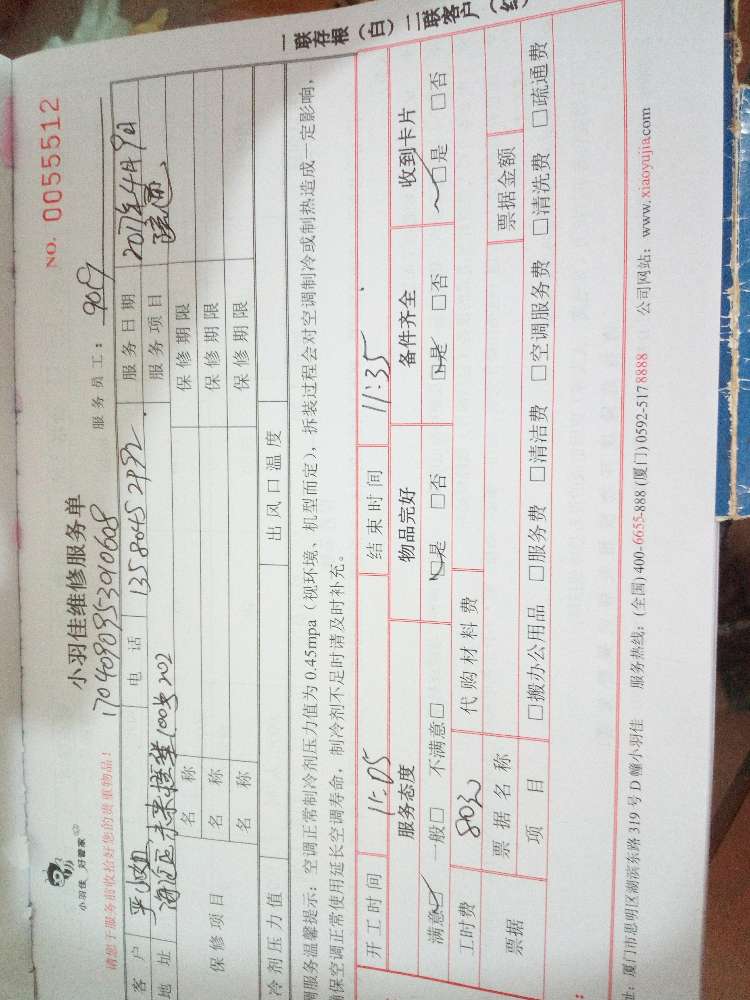 一联存根（白）二联客户（红
小羽佳 好管家
小羽佳维修服务单
NO. 0055512
170409095390608
请您于服务前收拾好您的贵重物品！
服务员工：
客户 小姐 电话 13580452492 服务日期 2017年4月9日
地址 100号202 服务项目 疏通
保修项目 名称 保修期限
名称 保修期限
名称 保修期限
冷剂压力值 出风口温度
调服务温馨提示：空调正常制冷剂压力值为0.45mpa（视环境、机型而定），拆装过程会对空调制冷或制热造成一定影响，
确保空调正常使用延长空调寿命，制冷剂不足时请及时补充。
开工时间 11:05 结束时间 11:35
服务态度 物品完好 备件齐全 收到卡片
满意☑ 一般□ 不满意□ ☑是 □否 ☑是 □否 ☑是 □否
工时费 80元 代购材料费
票据 票据名称 票据金额
项目 □搬办公用品 □服务费 □清洁费 □空调服务费 □清洗费 □疏通费
址：厦门市思明区湖滨东路319号D幢小羽佳 服务热线：(全国) 400-6655-888 (厦门) 0592-5178888 公司网站：www.xiaoyujia.com